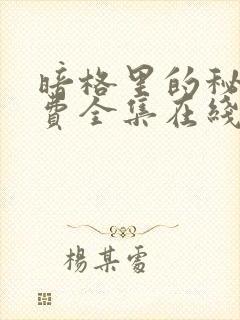 暗格里的秘
费全集在线
楊某雷